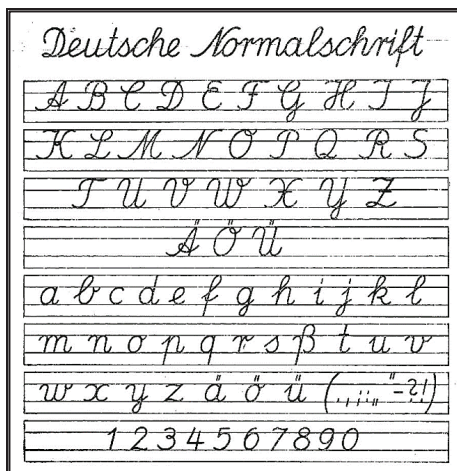 Deutsche Normalschrift
A B C D E F G H I J
K L M N O P Q R S
T U V W X Y Z
Ä Ö Ü
a b c d e f g h i j k l
m n o p q r s ß t u v
w x y z ä ö ü (.,;:„"-?!)
1 2 3 4 5 6 7 8 9 0